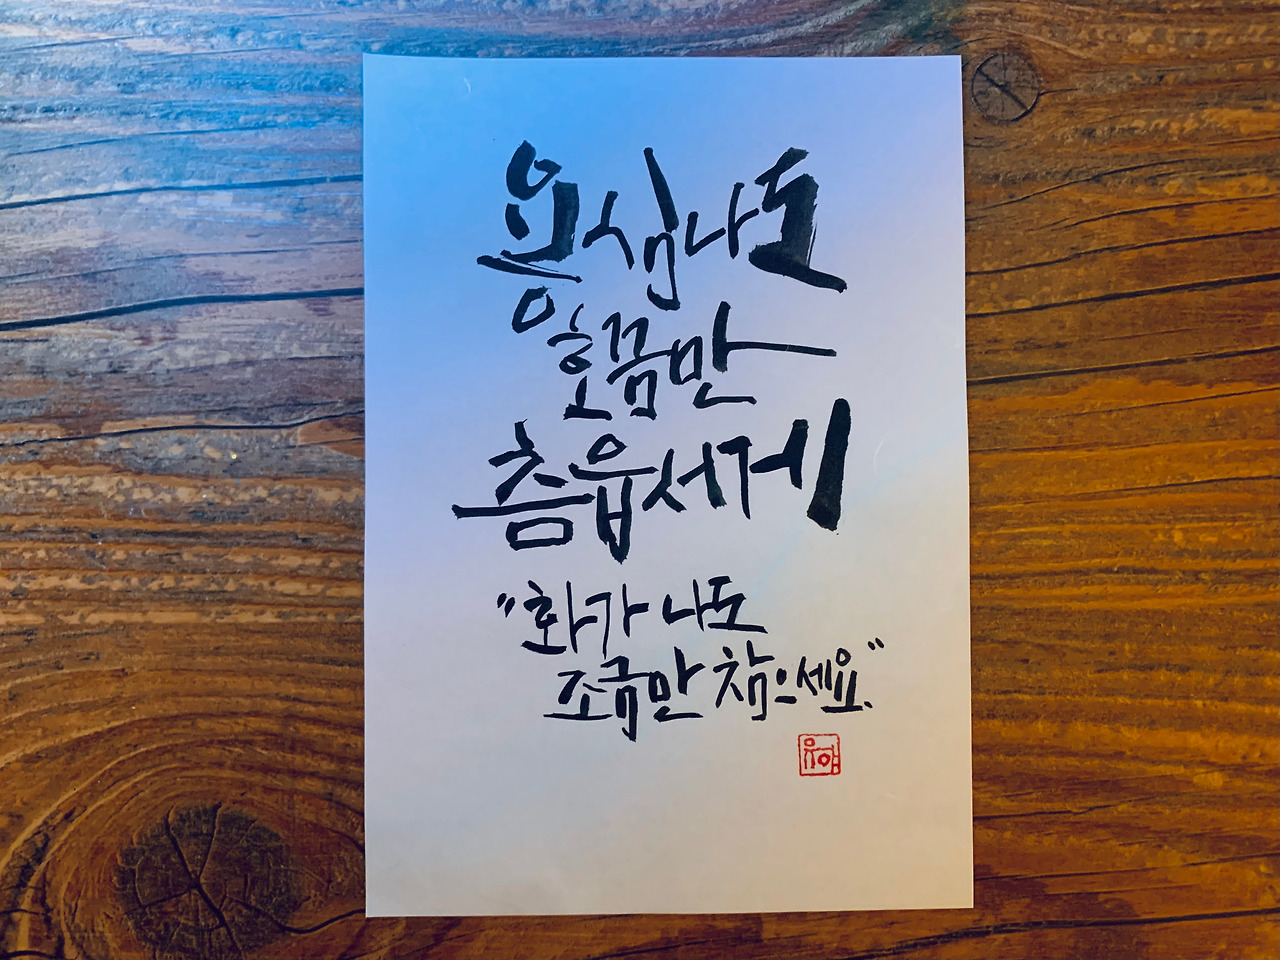 용심나도
호끔만
츰읍서게
"화가 나도
조금만 참으세요."